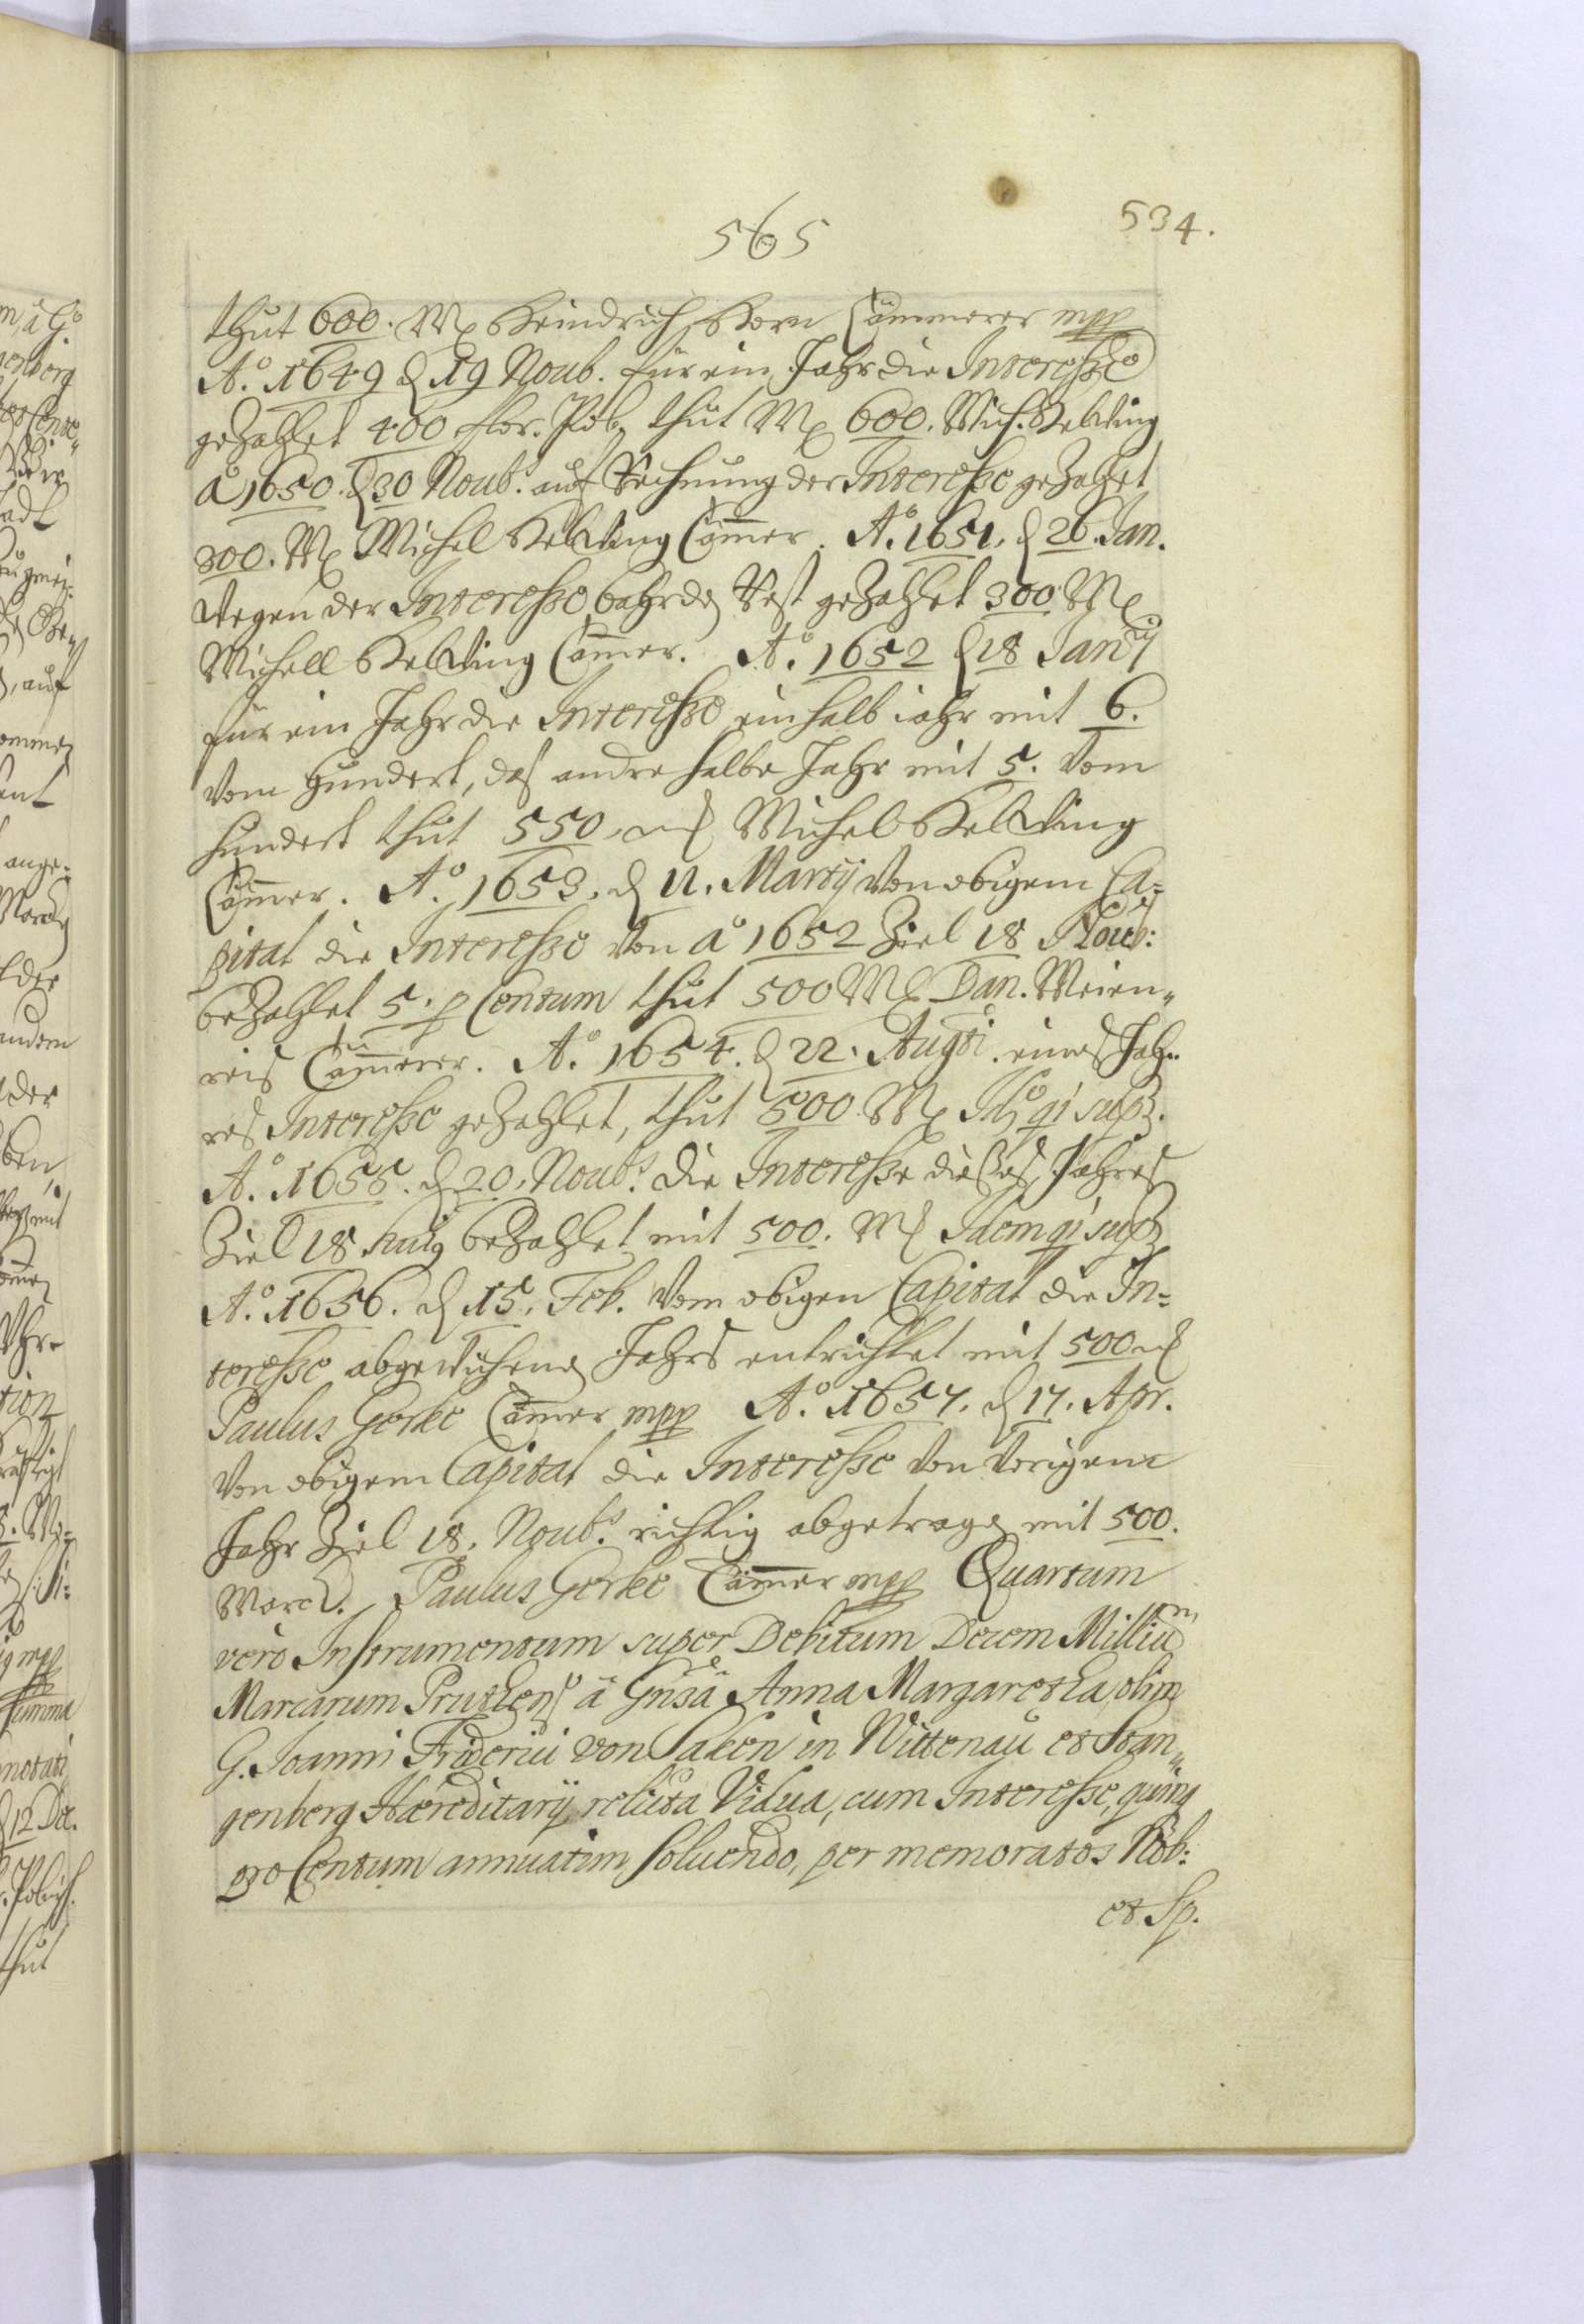 565
534.
thut 600. M Heindrich Horn Cämmerer mpp
A.° 1649 d 19 Noub. für ein Jahr die Interesse
gezahlet 400 flor. Pol. thut M 600. Mich. Kelding
a° 1650. d 30 Noubr. auf Rechnung der Interesse gezahlet
300. M Michel Kelding Cammer. A.° 1651. d 26. Jan.
wegen der Interesse bahrden Rest gezahlet 300 M
Michell Kelding Cammer. A.° 1652 d 18 Janry
für ein Jahr die Interesse ein halb iahr mit 6.
vom Hundert, das andre halbe Jahr mit 5. vom
hundert thut 550, M Michel Kelding
Cammer. A.° 1653. d 11. Martij von obigem Ca=
pital die Interesse von a° 1652 Ziel 18 Noub:
bezahlet 5. p Centum thut 500 M Dan. Meien„
reis Cammerer. A.° 1654. d 22. Augti. eines Jah„
res Interesse gezahlet, thut 500 M Id qi sup.
A.° 1655. d 20. Noubr. die Interesse dießes Jahres
Ziel 18 Aug bezahlet mit 500. M Idem qi sup
A.° 1656. d 15. Feb. vom obigen Capital die In=
teresse abgewichenen Jahrs entrichtet mit 500 M
Paulus Gerke Cämmer mpp A.° 1657. d 17. Apr.
von obigem Capital die Interesse von vorigem
Jahr Ziel 18. Noubr. richtig abgetragen mit 500.
Marck. Paulus Gerke Cämmer mpp Quartum
vero Instrumentum super Debitum Decem Milliu m
Marcarum Pruthens â Gnsâ Anna Margaretha, olim
G. Joanni Friderici von Saken in Wittenau et Stan„
genberg Hæreditarij relicta Vidua, cum Interesse, quinq
pro Centum annuatim soluendo, per memoratos Nob:
et Sp.